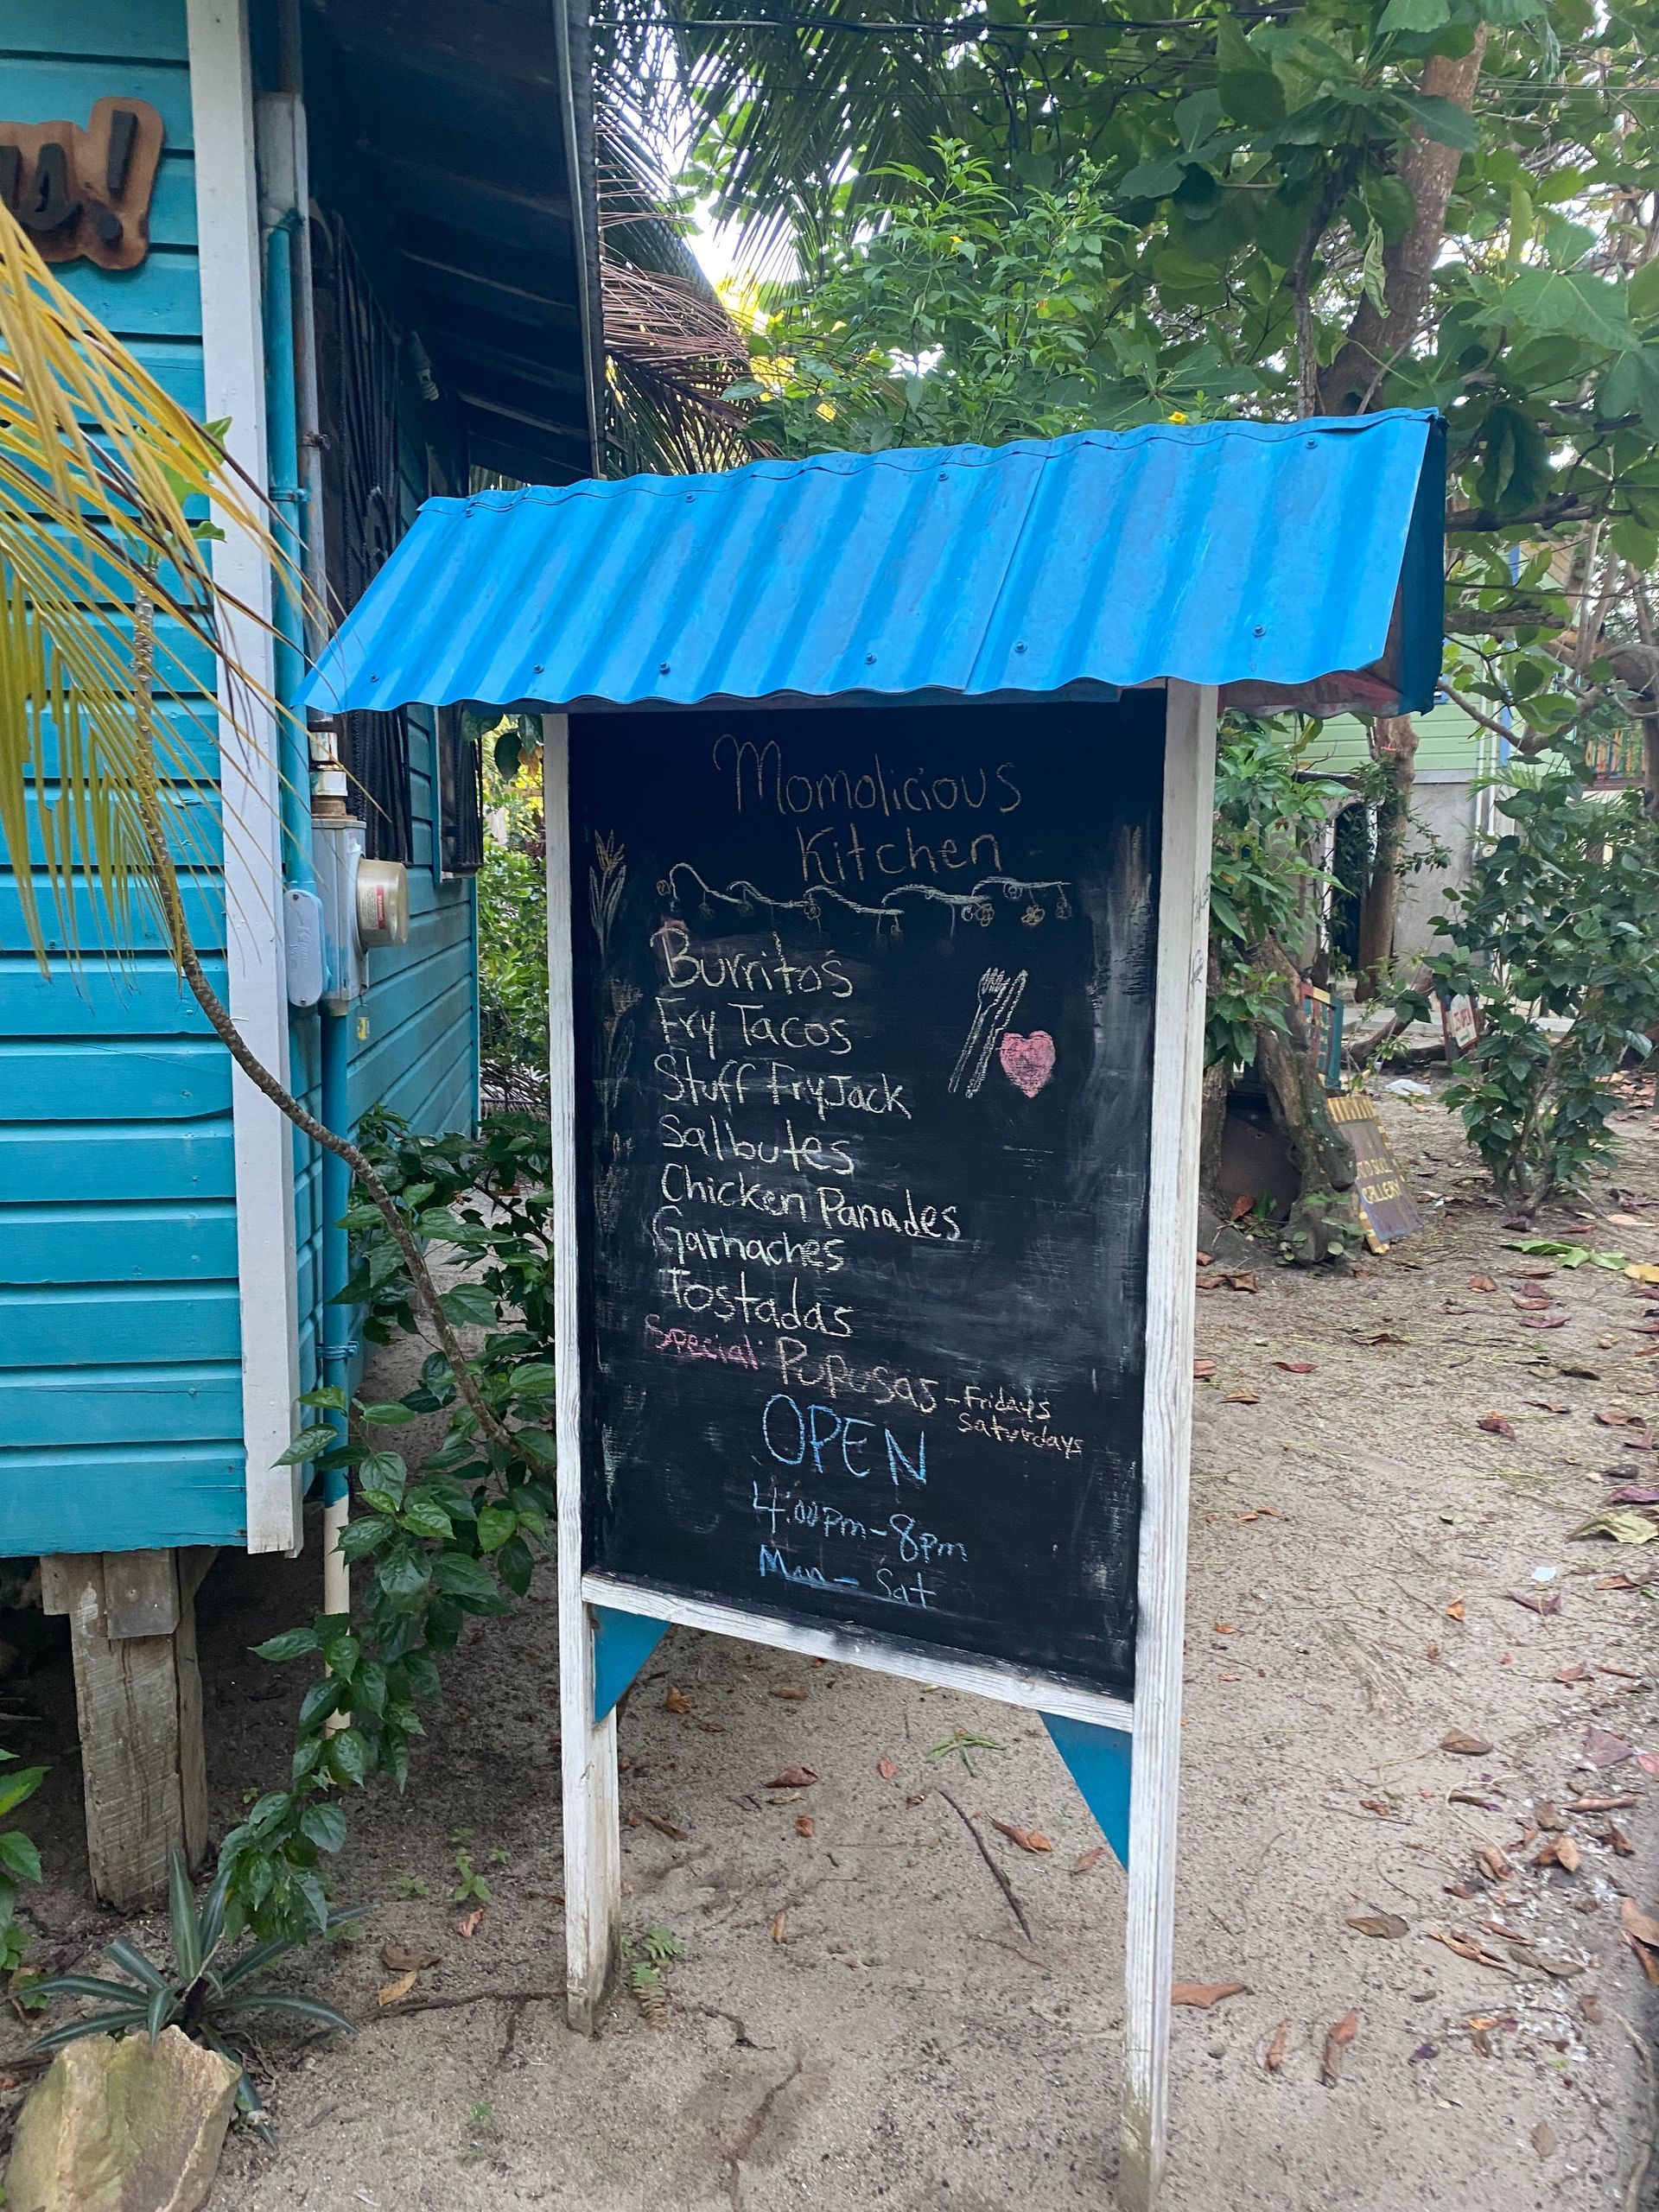 Momolicious
Kitchen
Burritos
Fry Tacos
Stuff FryJack
Salbutes
Chicken Panades
Garnaches
Tostadas
Special: Pupusas - Fridays
Saturdays
OPEN
4:00pm-8pm
Mon- Sat
GALLERY